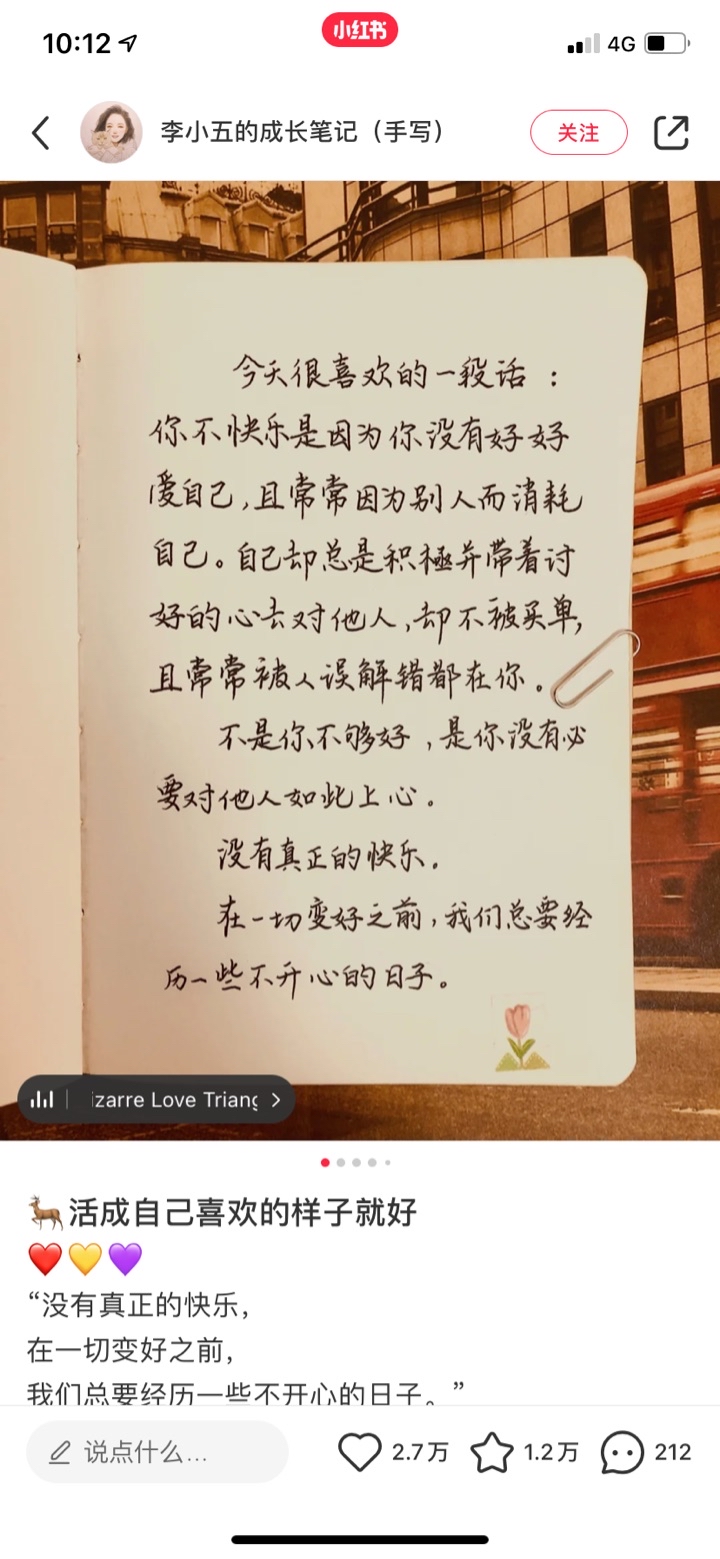 10:12
小红书
4G
李小五的成长笔记（手写）
关注
今天很喜欢的一段话：
你不快乐是因为你没有好好
爱自己,且常常因为别人而消耗
自己。自己却总是积極并带着讨
好的心去对他人,却不被买单,
且常常被人误解错都在你。
不是你不够好,是你没有必
要对他人如此上心。
没有真正的快乐.
在一切变好之前,我们总要经
历一些不开心的日子。
izarre Love Triang
活成自己喜欢的样子就好
“没有真正的快乐，
在一切变好之前，
我们总要经历一些不开心的日子。”
说点什么...
2.7万
1.2万
212